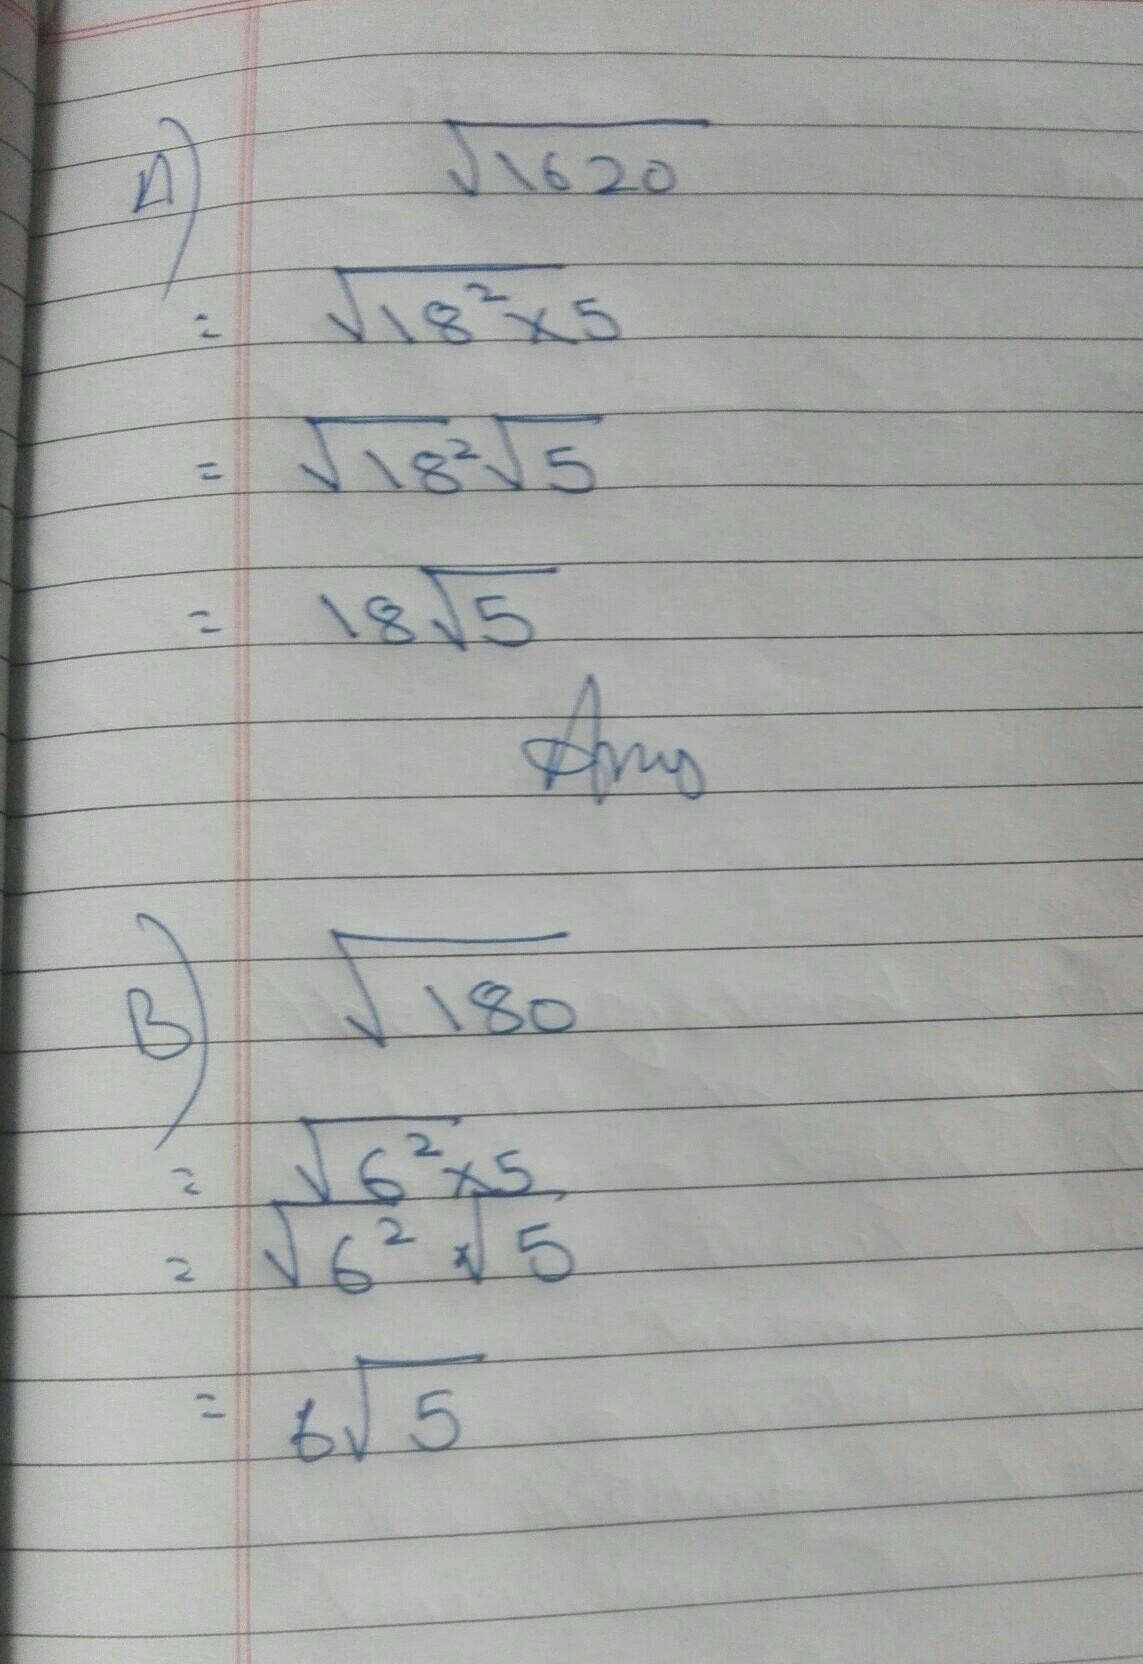 A) √1620
= √18²×5
= √18²√5
= 18√5
Ans
B) √180
= √6²×5
= √6² ×√5
= 6√5